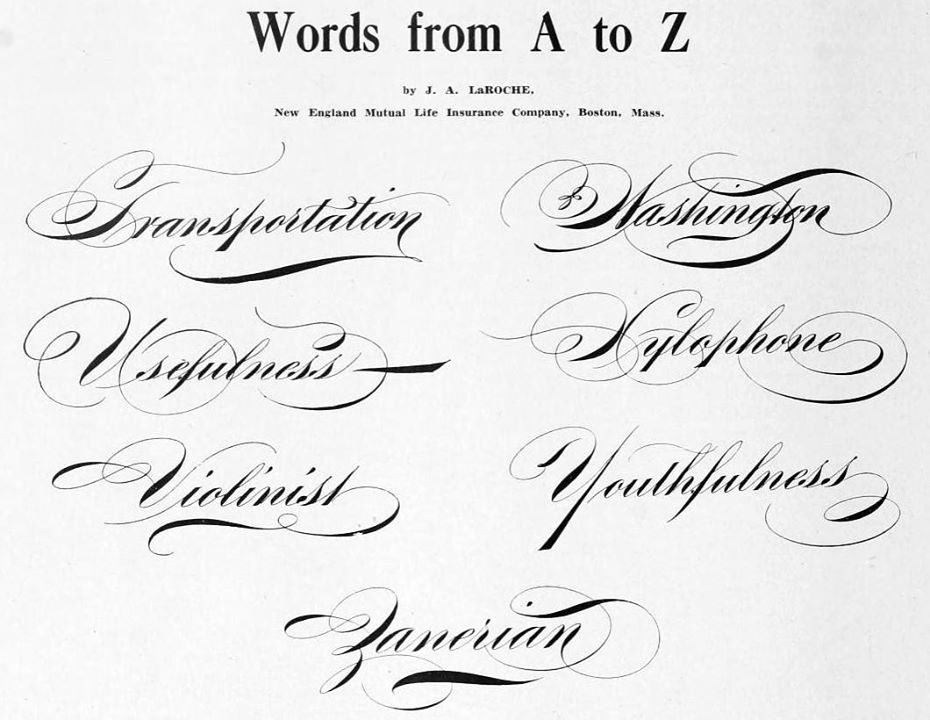 Words from A to Z
by J. A. LaROCHE,
New England Mutual Life Insurance Company, Boston, Mass.
Transportation
Washington
Usefulness
Xylophone
Violinist
Youthfulness
Zanerian